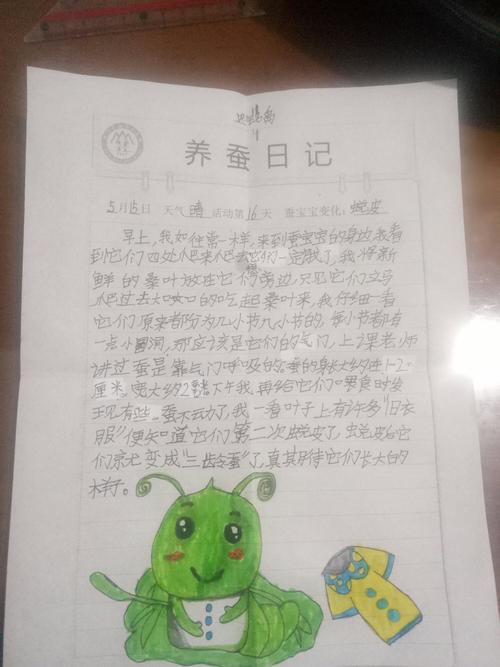 养蚕日记
5月15日 天气晴 活动第16天 蚕宝宝变化:蜕皮
早上,我如往常一样,来到蚕宝宝的身边,我看
到它们四处爬来爬去,它们一定饿了,我将新
鲜的桑叶放在它们旁边,只见它们立马
爬过去大口大口的吃起桑叶来,我仔细一看
它们原来都分为几小节几小节的,每小节都有
一点小圆洞,那应该是它们的气门,上课老师
讲过蚕是靠气门呼吸的,蚕的身长大约在1-2
厘米,宽大约2毫米,下午我再给它们喂食时发
现有些蚕不动了,我一看叶子上有许多“旧衣
服”便知道它们第二次蜕皮了,蜕皮后它
们就变成“三龄蚕”了,真期待它们长大的
样子。